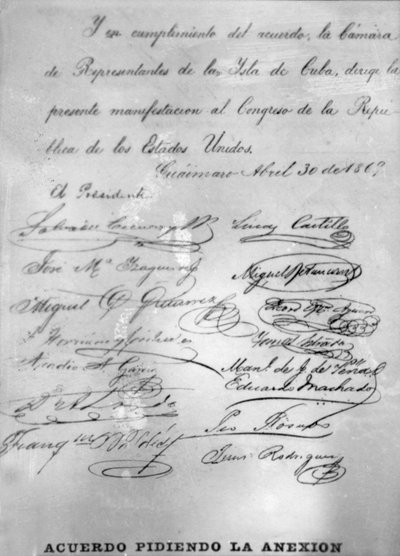 Y en cumplimiento del acuerdo, la Cámara
de Representantes de la Isla de Cuba, dirige la
presente manifestacion al Congreso de la Repú-
blica de los Estados Unidos.
Guáimaro Abril 30 de 1869
El Presidente
Lucas Castillo
José Mª Izaguirre
Miguel Betancourt
Miguel G. Gutierrez
Tomás Estrada
Arcadio S. García
Manl. de J. de Peña
Eduardo Machado
Pio Rosado
Jesus Rodriguez
ACUERDO PIDIENDO LA ANEXION